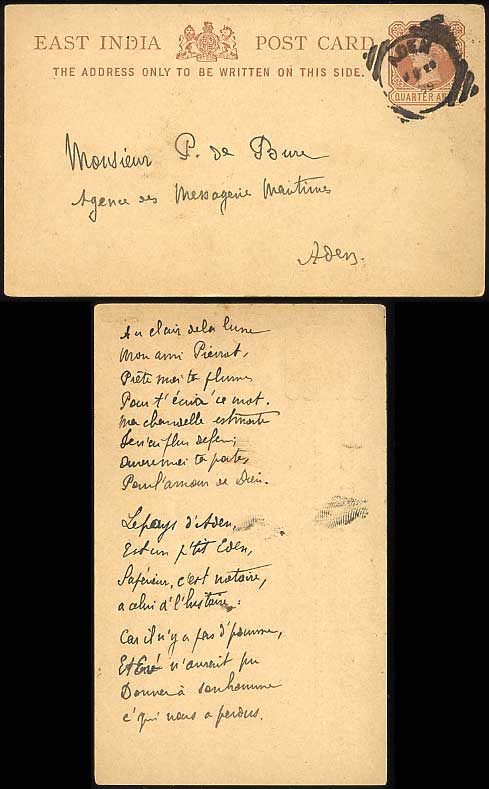 EAST INDIA POST CARD
THE ADDRESS ONLY TO BE WRITTEN ON THIS SIDE.
QUARTER AN
ADEN
Monsieur P. de Bure
Agence des Messagerie Maritimes
Aden.
Au clair de la lune
Mon ami Pierrot,
Prête moi ta plume
Pour t'écrire ce mot.
Ma chandelle est morte
Je n'ai plus de feu;
Ouvre moi ta porte,
Pour l'amour de Dieu.
Le pays d'Aden,
Est un p'tit Eden,
Supérieur, c'est notoire,
a celui d'l'histoire:
Car il n'y a pas d'pomme,
Et Eve n'aurait pu
Donner à son homme
c'qui nous a perdus.